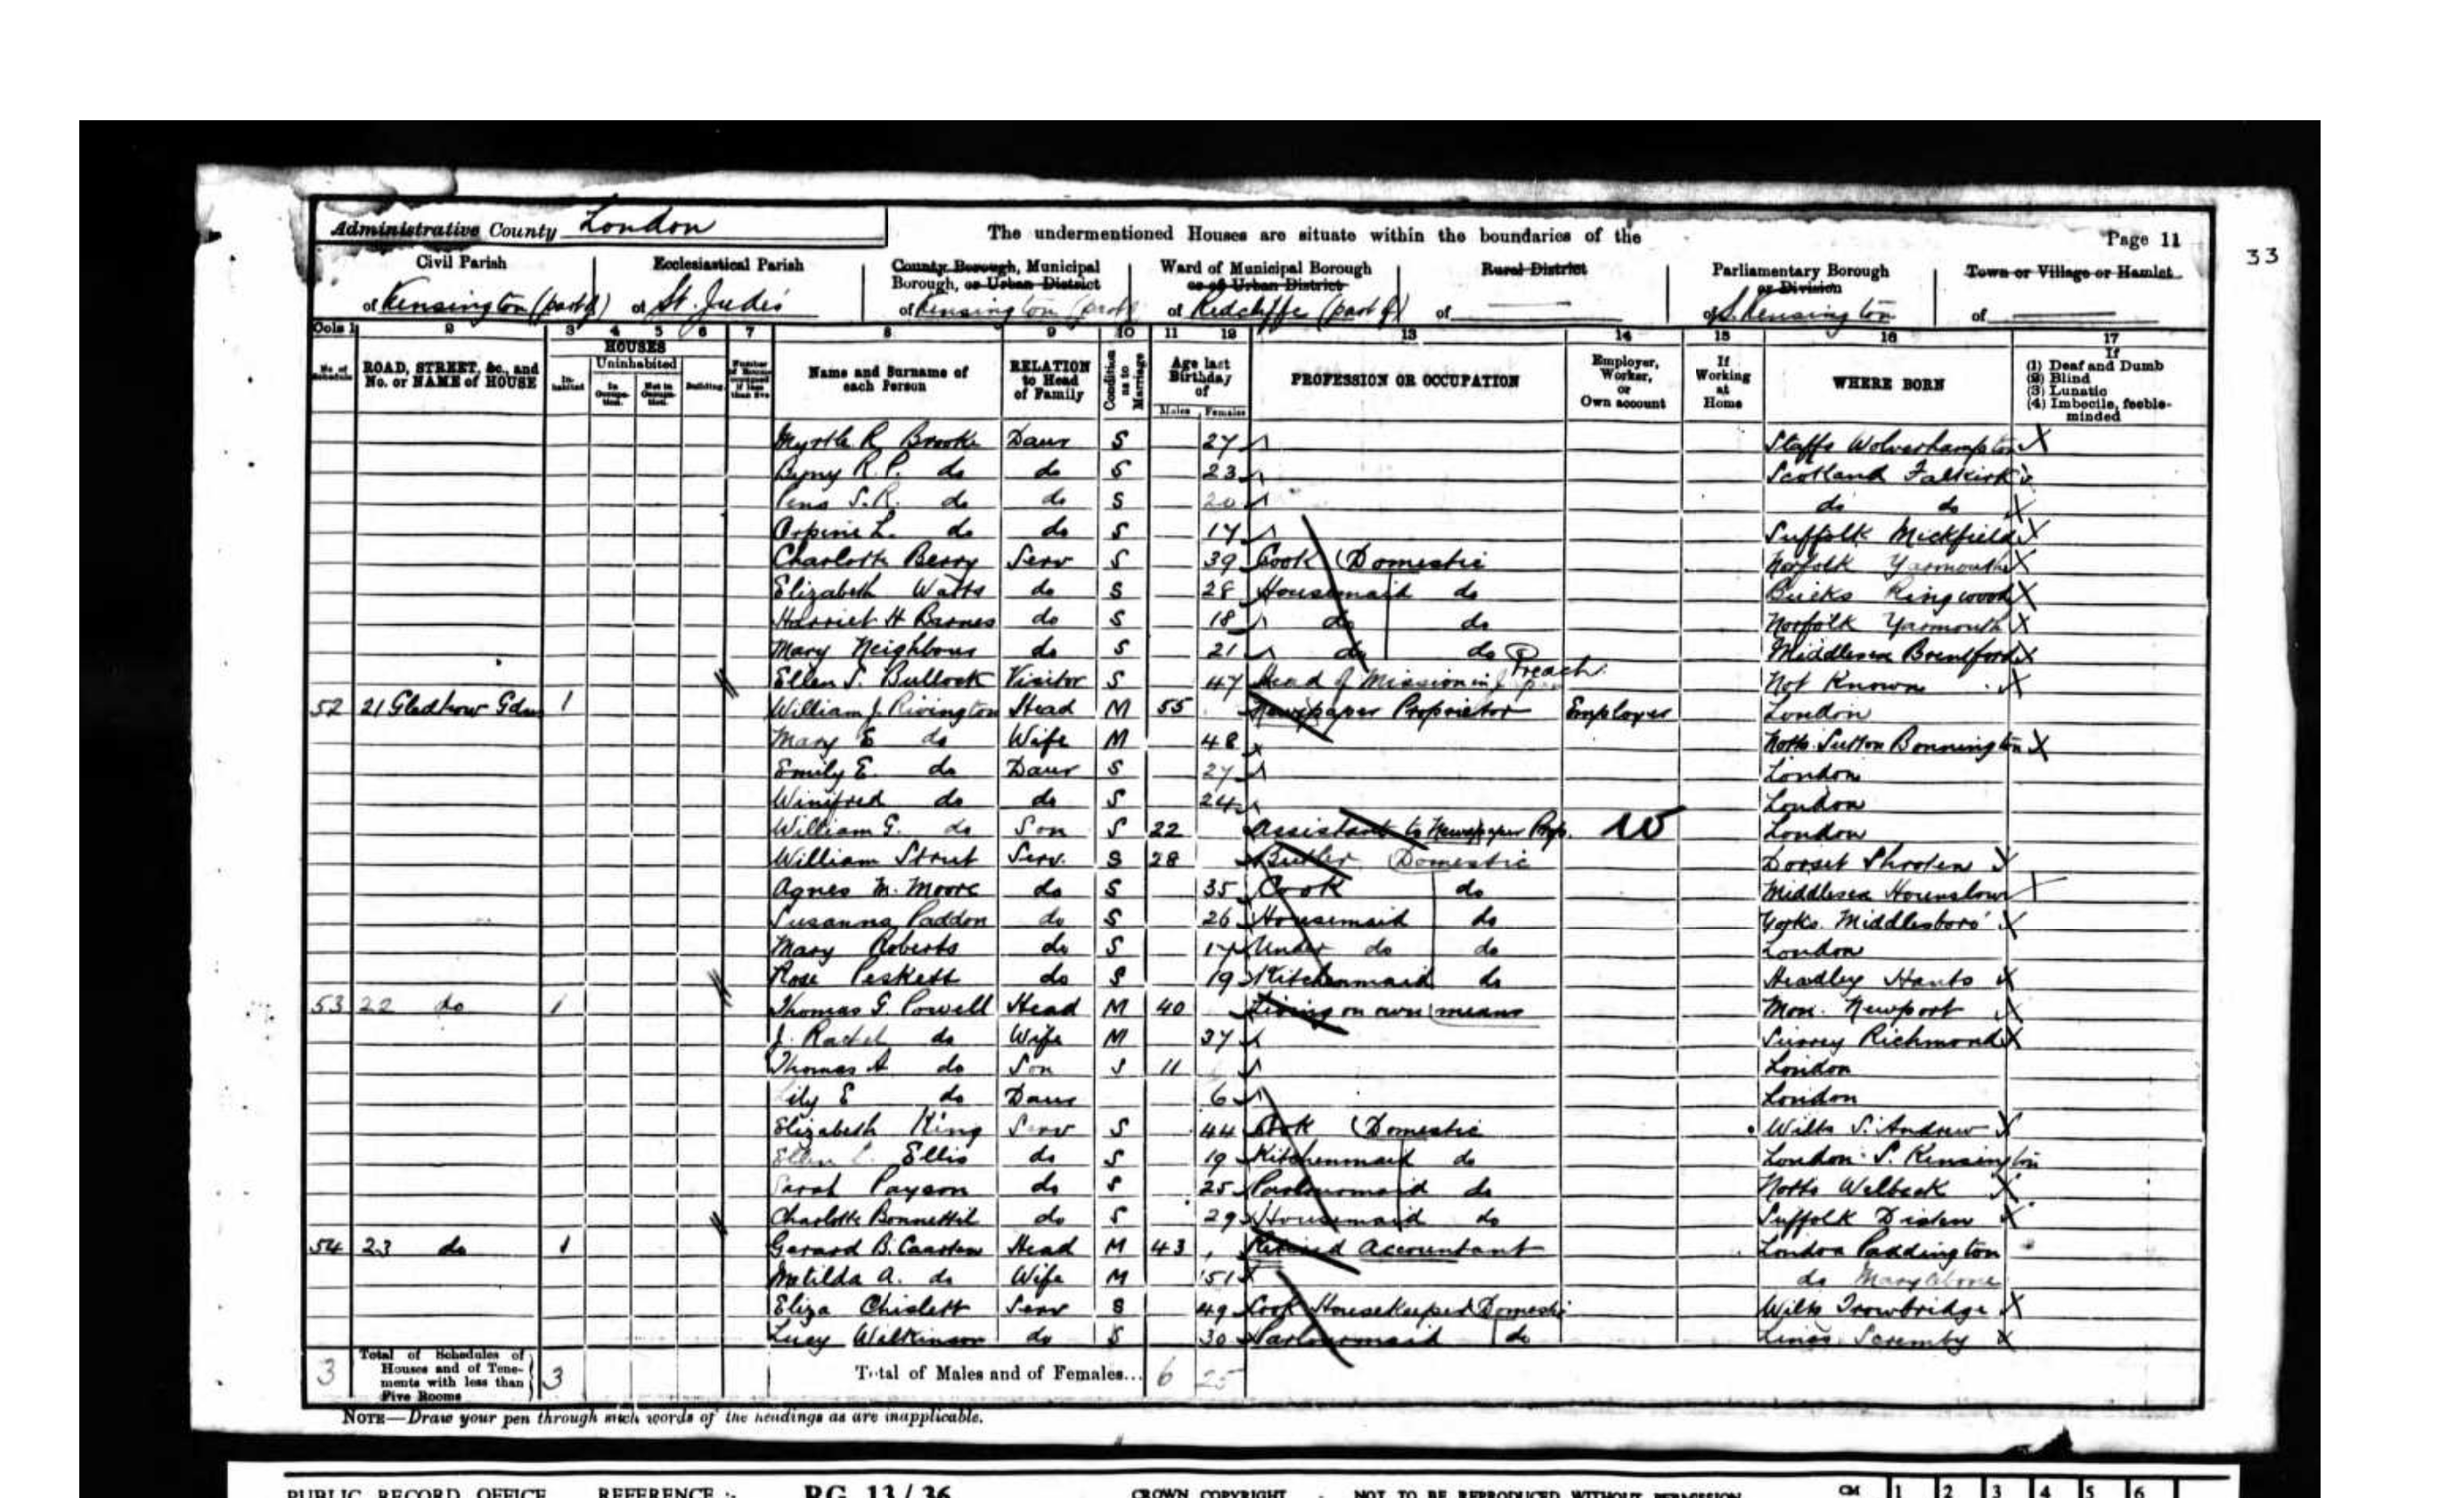 Administrative County London
The undermentioned Houses are situate within the boundaries of the
Page 11
33
Civil Parish of Kensington (part of)
Ecclesiastical Parish of St. Jude's
County Borough, Municipal Borough, or Urban District of Kensington (part
Ward of Municipal Borough or of Urban District of Redcliffe (part of)
Rural District of
Parliamentary Borough or Division of S. Kensington
Town or Village or Hamlet of
Cols 1 2 3 4 5 6 7 8 9 10 11 12 13 14 15 16 17
No. of Schedule
ROAD, STREET, &c., and No. or NAME of HOUSE
HOUSES
Inhabited
Uninhabited
In Occupation.
Not in Occupation.
Building.
Name and Surname of each Person
RELATION to Head of Family
Condition as to Marriage
Age last Birthday of
Males Females
PROFESSION OR OCCUPATION
Employer, Worker, or Own account
If Working at Home
WHERE BORN
If (1) Deaf and Dumb (2) Blind (3) Lunatic (4) Imbecile, feeble-minded
Myrtle R Brooke Daur S 27 Staffs Wolverhampton
R. P. do do S 23 Scotland Falkirk
S. R. do do S 20 do do
Orpine L. do do S 17 Suffolk Mickfield
Charlotte Berry Serv S 39 Cook (Domestic Norfolk Yarmouth
Elizabeth Watts do S 28 Housemaid do Bucks Ringwood
Harriet H Barnes do S 18 do do Norfolk Yarmouth
Mary Neighbour do S 21 do do Middlesex Brentford
Ellen S. Bullock Visitor S 47 Head of Mission Preach. Not Known
52 21 Gledhow Gdns 1 William J. Rivington Head M 55 Newspaper Proprietor Employer London
Mary E do Wife M 48 Notts Sutton Bonnington
Emily E. do Daur S 27 London
Winifred do do S 24 London
William G. do Son S 22 Assistant to Newspaper Prop. London
William Strut Serv. S 28 Butler (Domestic Dorset Shroten
Agnes M. Moore do S 35 Cook do Middlesex Hounslow
Susanna Paddon do S 26 Housemaid do Yorks. Middlesboro'
Mary Roberts do S 17 Under do do London
Rose Peskett do S 19 Kitchenmaid do Headley Hants
53 22 do 1 Thomas G. Powell Head M 40 Living on own means Mon. Newport
J. Rachel do Wife M 37 Surrey Richmond
Thomas A do Son S 11 London
Lily E do Daur 6 London
Elizabeth King Serv S 44 Cook (Domestic Wilts S. Andrew
Ellen Ellis do S 19 Kitchenmaid do London S. Kensington
Sarah Payson do S 25 Parlourmaid do Notts Welbeck
Charlotte Bonnettil do S 29 Housemaid do Suffolk
54 23 do 1 Gerard B. Caarten Head M 43 Retired Accountant London Paddington
Matilda A. do Wife M 51 do Marylebone
Eliza Chislett Serv S 49 Cook Housekeeper Domestic Wilts Trowbridge
Lucy Wilkinson do S 30 Parlourmaid do Lincs Scremby
3 Total of Schedules of Houses and of Tenements with less than Five Rooms 3
Total of Males and of Females... 6 25
NOTE—Draw your pen through such words of the headings as are inapplicable.
PUBLIC RECORD OFFICE REFERENCE :- RG 13/36 CROWN COPYRIGHT NOT TO BE REPRODUCED WITHOUT PERMISSION CM 1 2 3 4 5 6